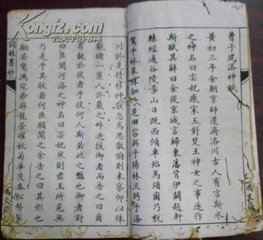 曹子建洛神賦
黃初三年余朝京師還濟洛川古人有言斯水
之神名曰宓妃感宋玉對楚王神女之事遂作
斯賦其辭曰余從京域言歸東藩背伊闕越轘
轅經通谷陵景山日既西傾車殆馬煩爾迺稅
駕乎蘅皋秣駟乎芝田容與乎陽林流眄乎洛
川於是精移神駭忽焉思散俯則未察仰以殊
觀睹一麗人于巖之畔迺援御者而告之曰爾
有覿於彼者乎彼何人斯若此之艷也御者對
曰臣聞河洛之神名曰宓妃然則君王所見無
迺是乎其狀若何臣願聞之余告之曰其形也
翩若驚鴻婉若遊龍榮曜秋菊華茂春松